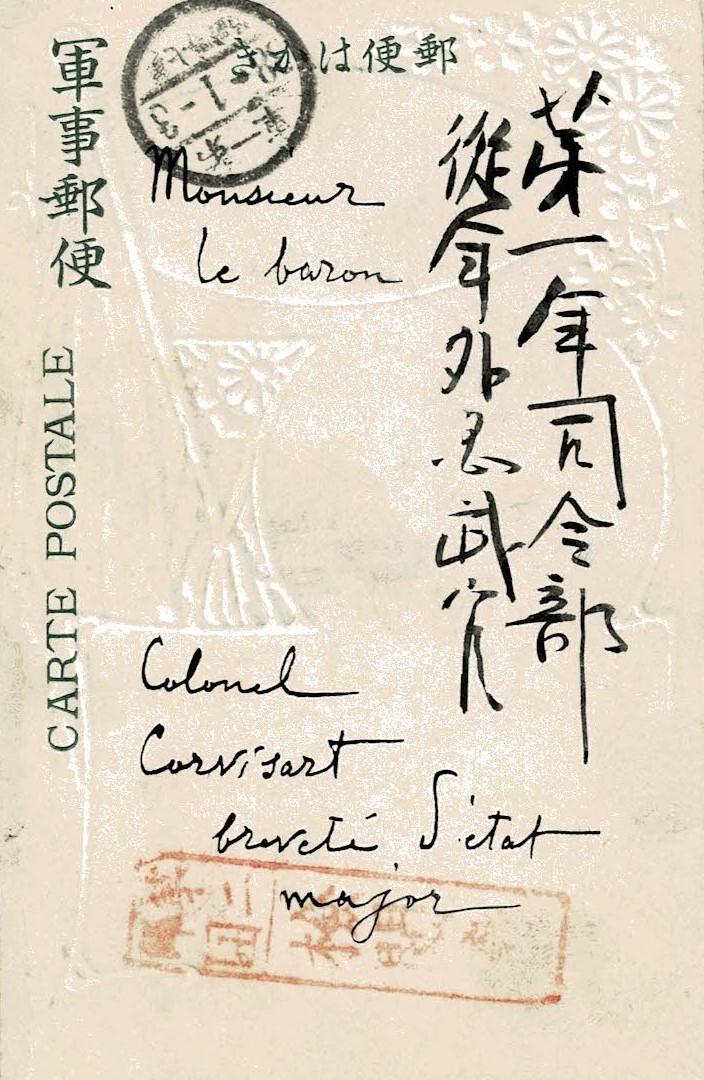 郵便はかき
軍事郵便
CARTE POSTALE
第一軍司令部
從軍外国武官
Monsieur
le baron
Colonel
Corvisart
breveté d'état
major